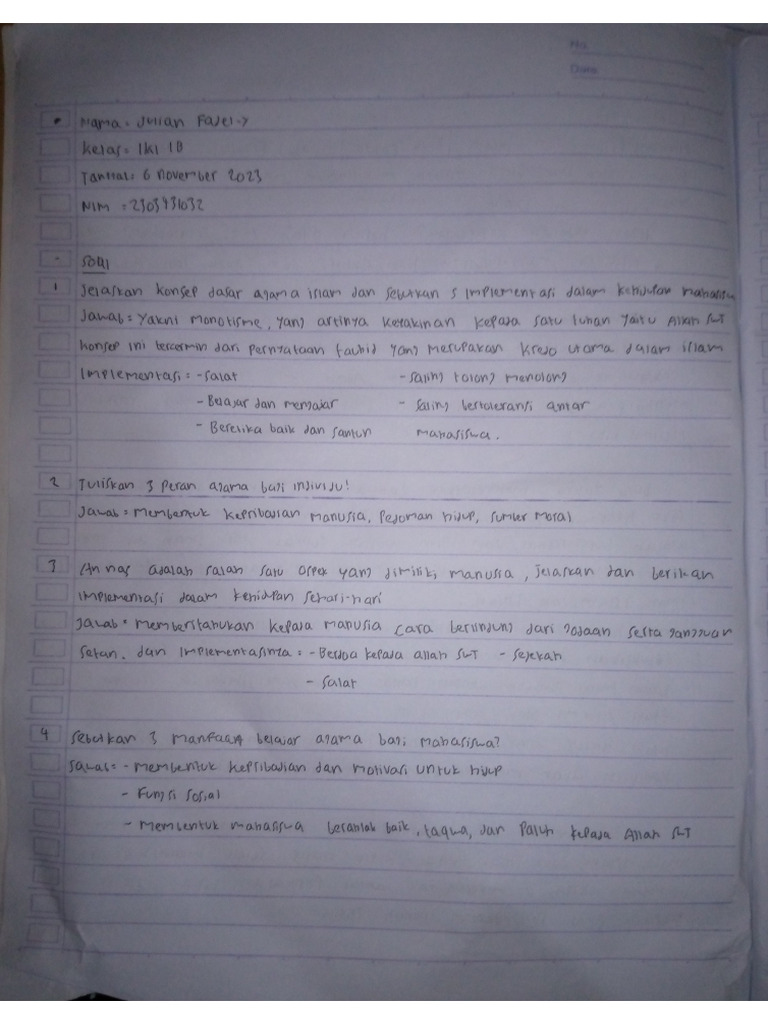 No.
Date
Nama = Julian Fajei
Kelas = 1k1 1B
Tanggal = 6 November 2023
NIM = 2303431032
Soal
1 Jelaskan konsep dasar agama islam dan sebutkan 5 implementasi dalam kehidupan mahasiswa
Jawab = Yakni monotisme, yang artinya keyakinan kepada satu tuhan yaitu Allah SWT
konsep ini tercermin dari pernyataan tauhid yang merupakan kredo utama dalam islam
Implementasi = - Salat - Saling tolong menolong
- Belajar dan mengajar - Saling bertoleransi antar
- Beretika baik dan santun mahasiswa.
2 Tuliskan 3 peran agama bagi individu!
Jawab = Membentuk kepribadian manusia, pedoman hidup, sumber moral
3 An nas adalah salah satu aspek yang dimiliki manusia, jelaskan dan berikan
implementasi dalam kehidupan sehari-hari
Jawab = memberitahukan kepada manusia cara berlindung dari godaan serta gangguan
setan. dan implementasinya = - Berdoa kepada allah SWT - Sejekah
- Salat
4 Sebutkan 3 manfaat belajar agama bagi mahasiswa?
Jawab = - membentuk kepribadian dan motivasi untuk hidup
- Fungsi sosial
- membentuk mahasiswa berakhlak baik, taqwa, dan patuh kepada Allah SWT